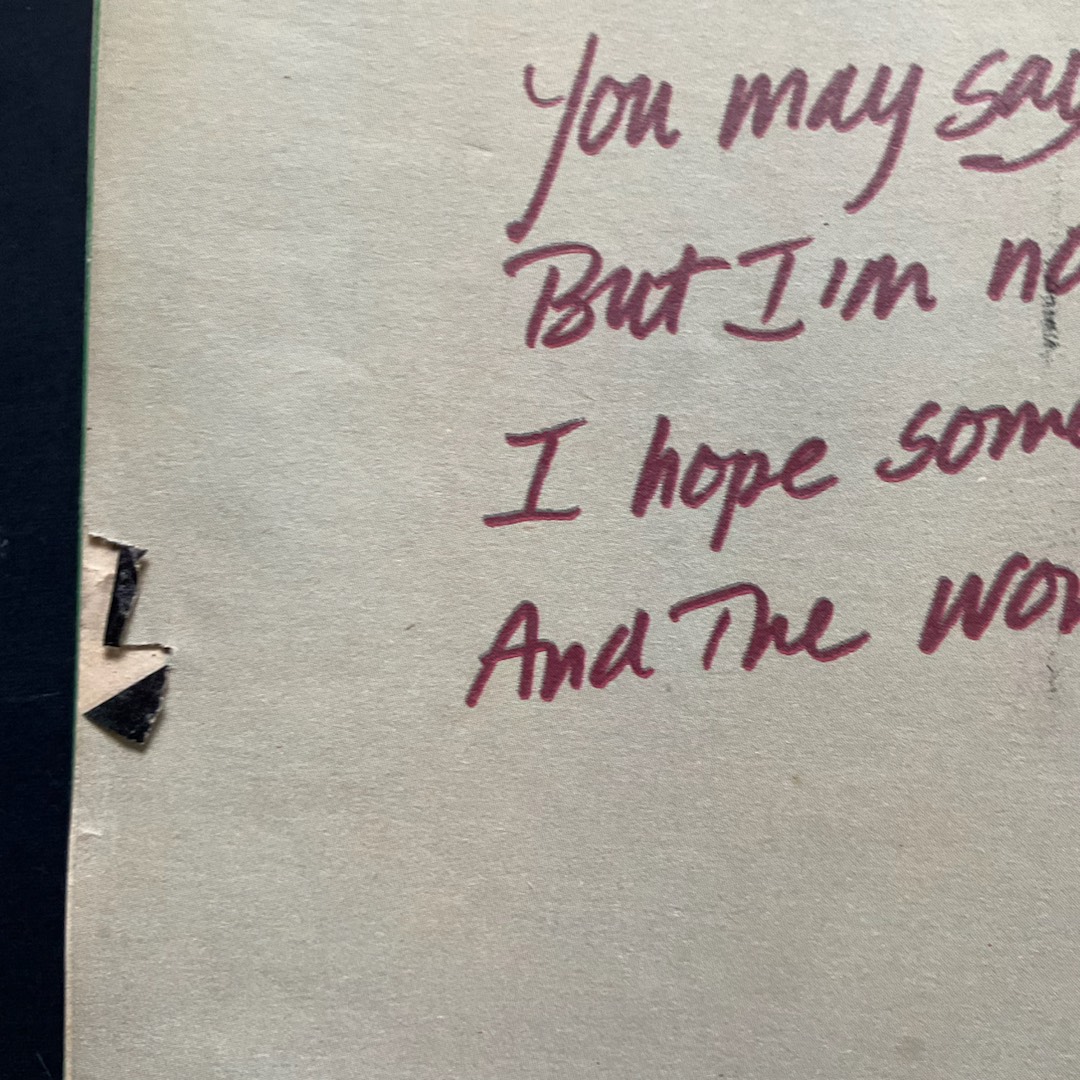 You may say
But I'm no
I hope some
And The wor